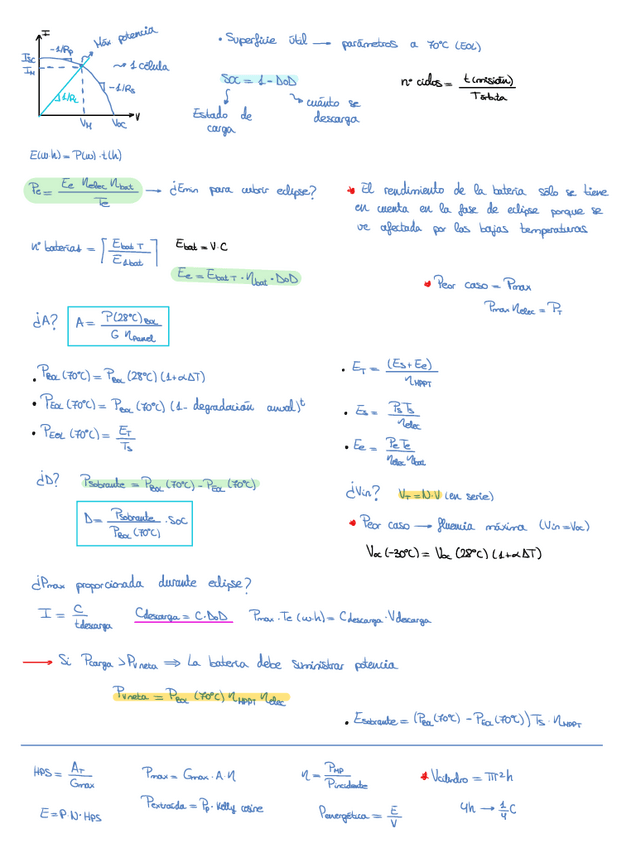 I
Máx potencia
-1/Rp
Isc
IM
1 célula
-1/Rs
1/RL
VM
Voc
V
• Superficie útil → parámetros a 70ºC (EOL)
SOC = 1 - DoD
Estado de carga
cuánto se descarga
nº ciclos = t(misión) / Tórbita
E(w·h) = P(w) · t(h)
Pe = Ee ηelec ηbat / Te → ¿Emin para cubrir eclipse?
* El rendimiento de la batería sólo se tiene
en cuenta en la fase de eclipse porque se
ve afectada por las bajas temperaturas
nº baterías = ⌈Ebat T / E1bat⌉
Ebat = V·C
Ee = Ebat T · ηbat · DoD
* Peor caso = Pmax
Pmax ηelec = PT
¿A? A = P(28ºC)BOL / G ηpanel
• PBOL (70ºC) = PBOL (28ºC) (1+αΔT)
• PEOL (70ºC) = PBOL (70ºC) (1- degradación anual)^t
• PEOL (70ºC) = ET / Ts
• ET = (Es + Ee) / ηMPPT
• Es = Ps Ts / ηelec
• Ee = Pe Te / ηelec ηbat
¿D? Psobrante = PBOL (70ºC) - PEOL (70ºC)
D = Psobrante / PBOL (70ºC) · SOC
¿Vin? VT = N·V (en serie)
* Peor caso → fluencia máxima (Vin = Voc)
Voc (-30ºC) = Voc (28ºC) (1+αΔT)
¿Pmax proporcionada durante eclipse?
I = C / tdescarga
Cdescarga = C·DoD
Pmax · Te (w·h) = Cdescarga · Vdescarga
→ Si Pcarga > PVneta ⇒ La batería debe suministrar potencia
PVneta = PBOL (70ºC) ηMPPT ηelec
• Esobrante = (PBOL (70ºC) - PEOL (70ºC)) Ts · ηMPPT
HPS = AT / Gmax
Pmax = Gmax · A · η
η = PMP / Pincidente
* Vcilindro = πr²h
E = P·N·HPS
Pextraída = Pp · Kelly cosine
Penergética = E / V
4h → 1/4 C